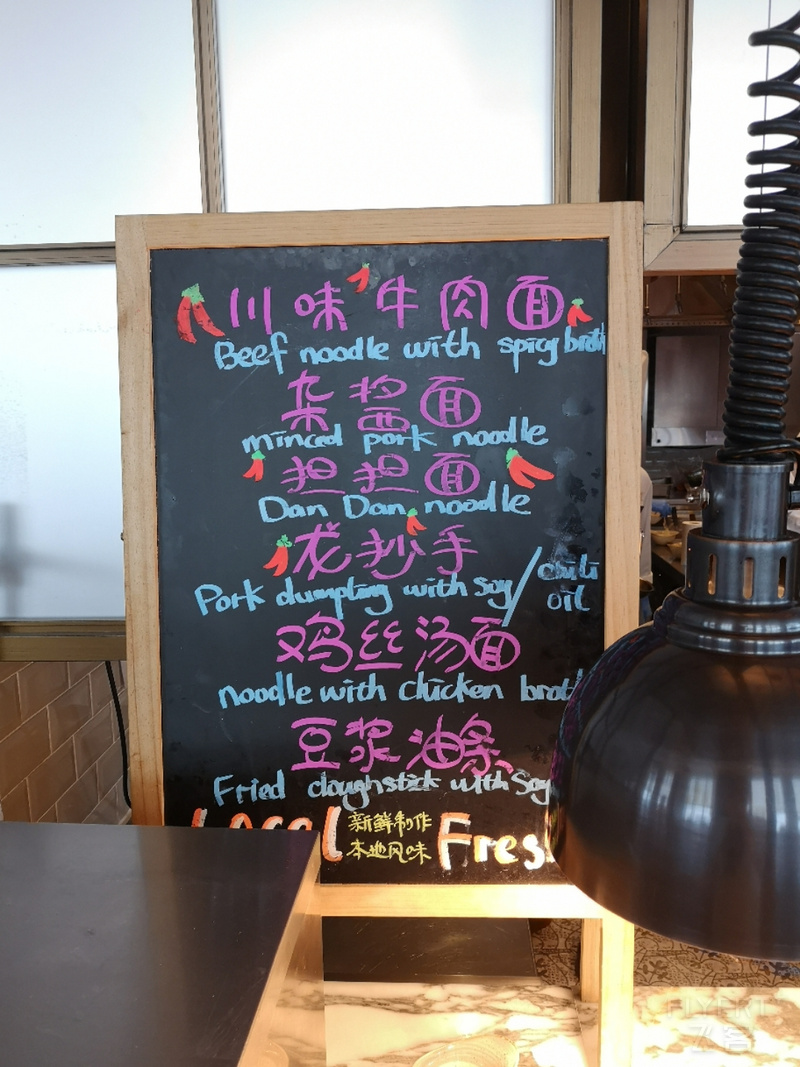 川味牛肉面
Beef noodle with spicy broth
杂酱面
minced pork noodle
担担面
Dan Dan noodle
龙抄手
Pork dumpling with soy/chili oil
鸡丝汤面
noodle with chicken broth
豆浆油条
Fried dough stick with Soy
Local 新鲜制作 Fres
本地风味
FLYERT
飞客